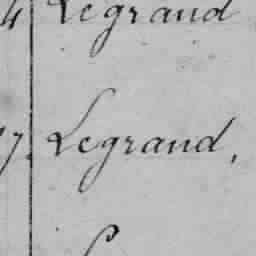 4 Legrand
7. Legrand,